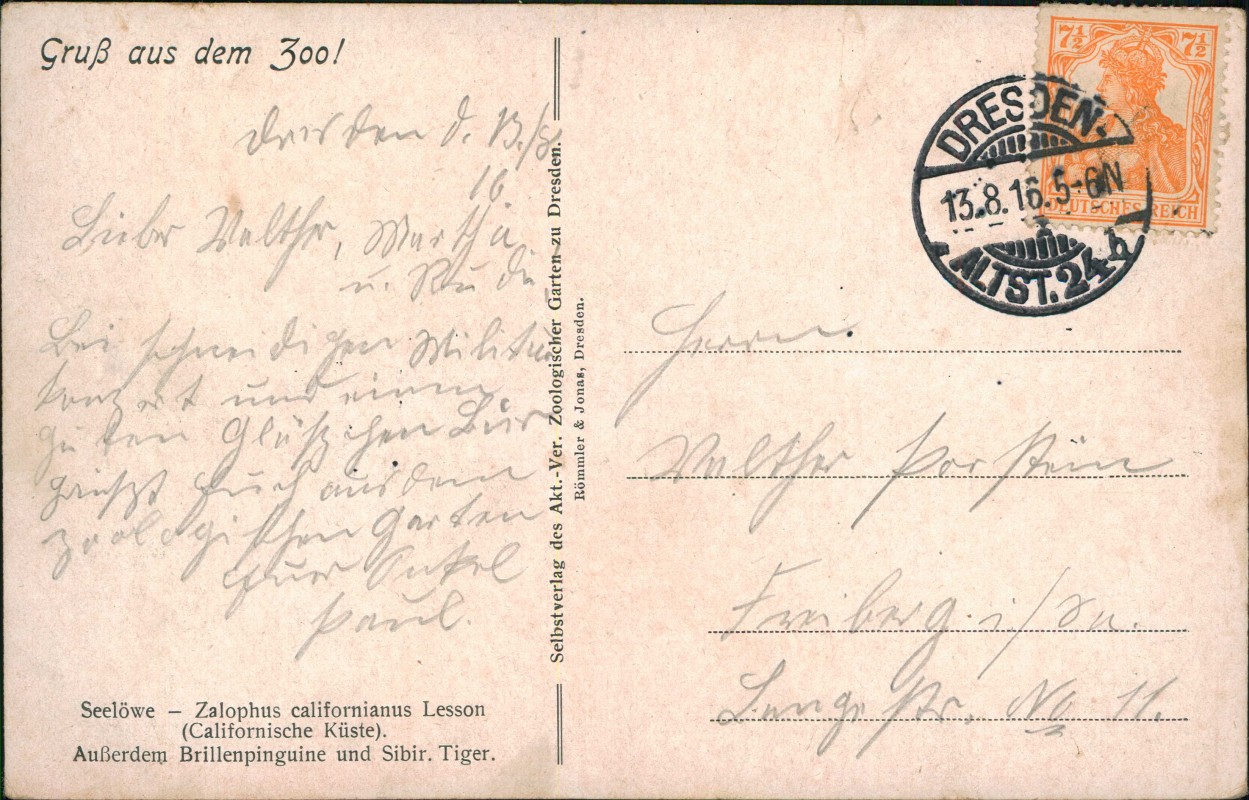 Gruß aus dem Zoo!
Dresden d. 13./8.
16.
Lieber Walther, Martha
u. Rudi
Bei schneidigen Militär
konzert und einem
guten Gläschen Bier
grüßt Euch aus dem
zoologischen Garten
Euer Onkel
Paul.
Seelöwe – Zalophus californianus Lesson
(Californische Küste).
Außerdem Brillenpinguine und Sibir. Tiger.
Selbstverlag des Akt.-Ver. Zoologischer Garten zu Dresden.
Römmler & Jonas, Dresden.
7½ 7½
DEUTSCHES REICH
DRESDEN-
13.8.16. 5-6N
ALTST. 24 b
Herrn.
Walther
Freiberg i/Sa.
Lange Str. No 11.